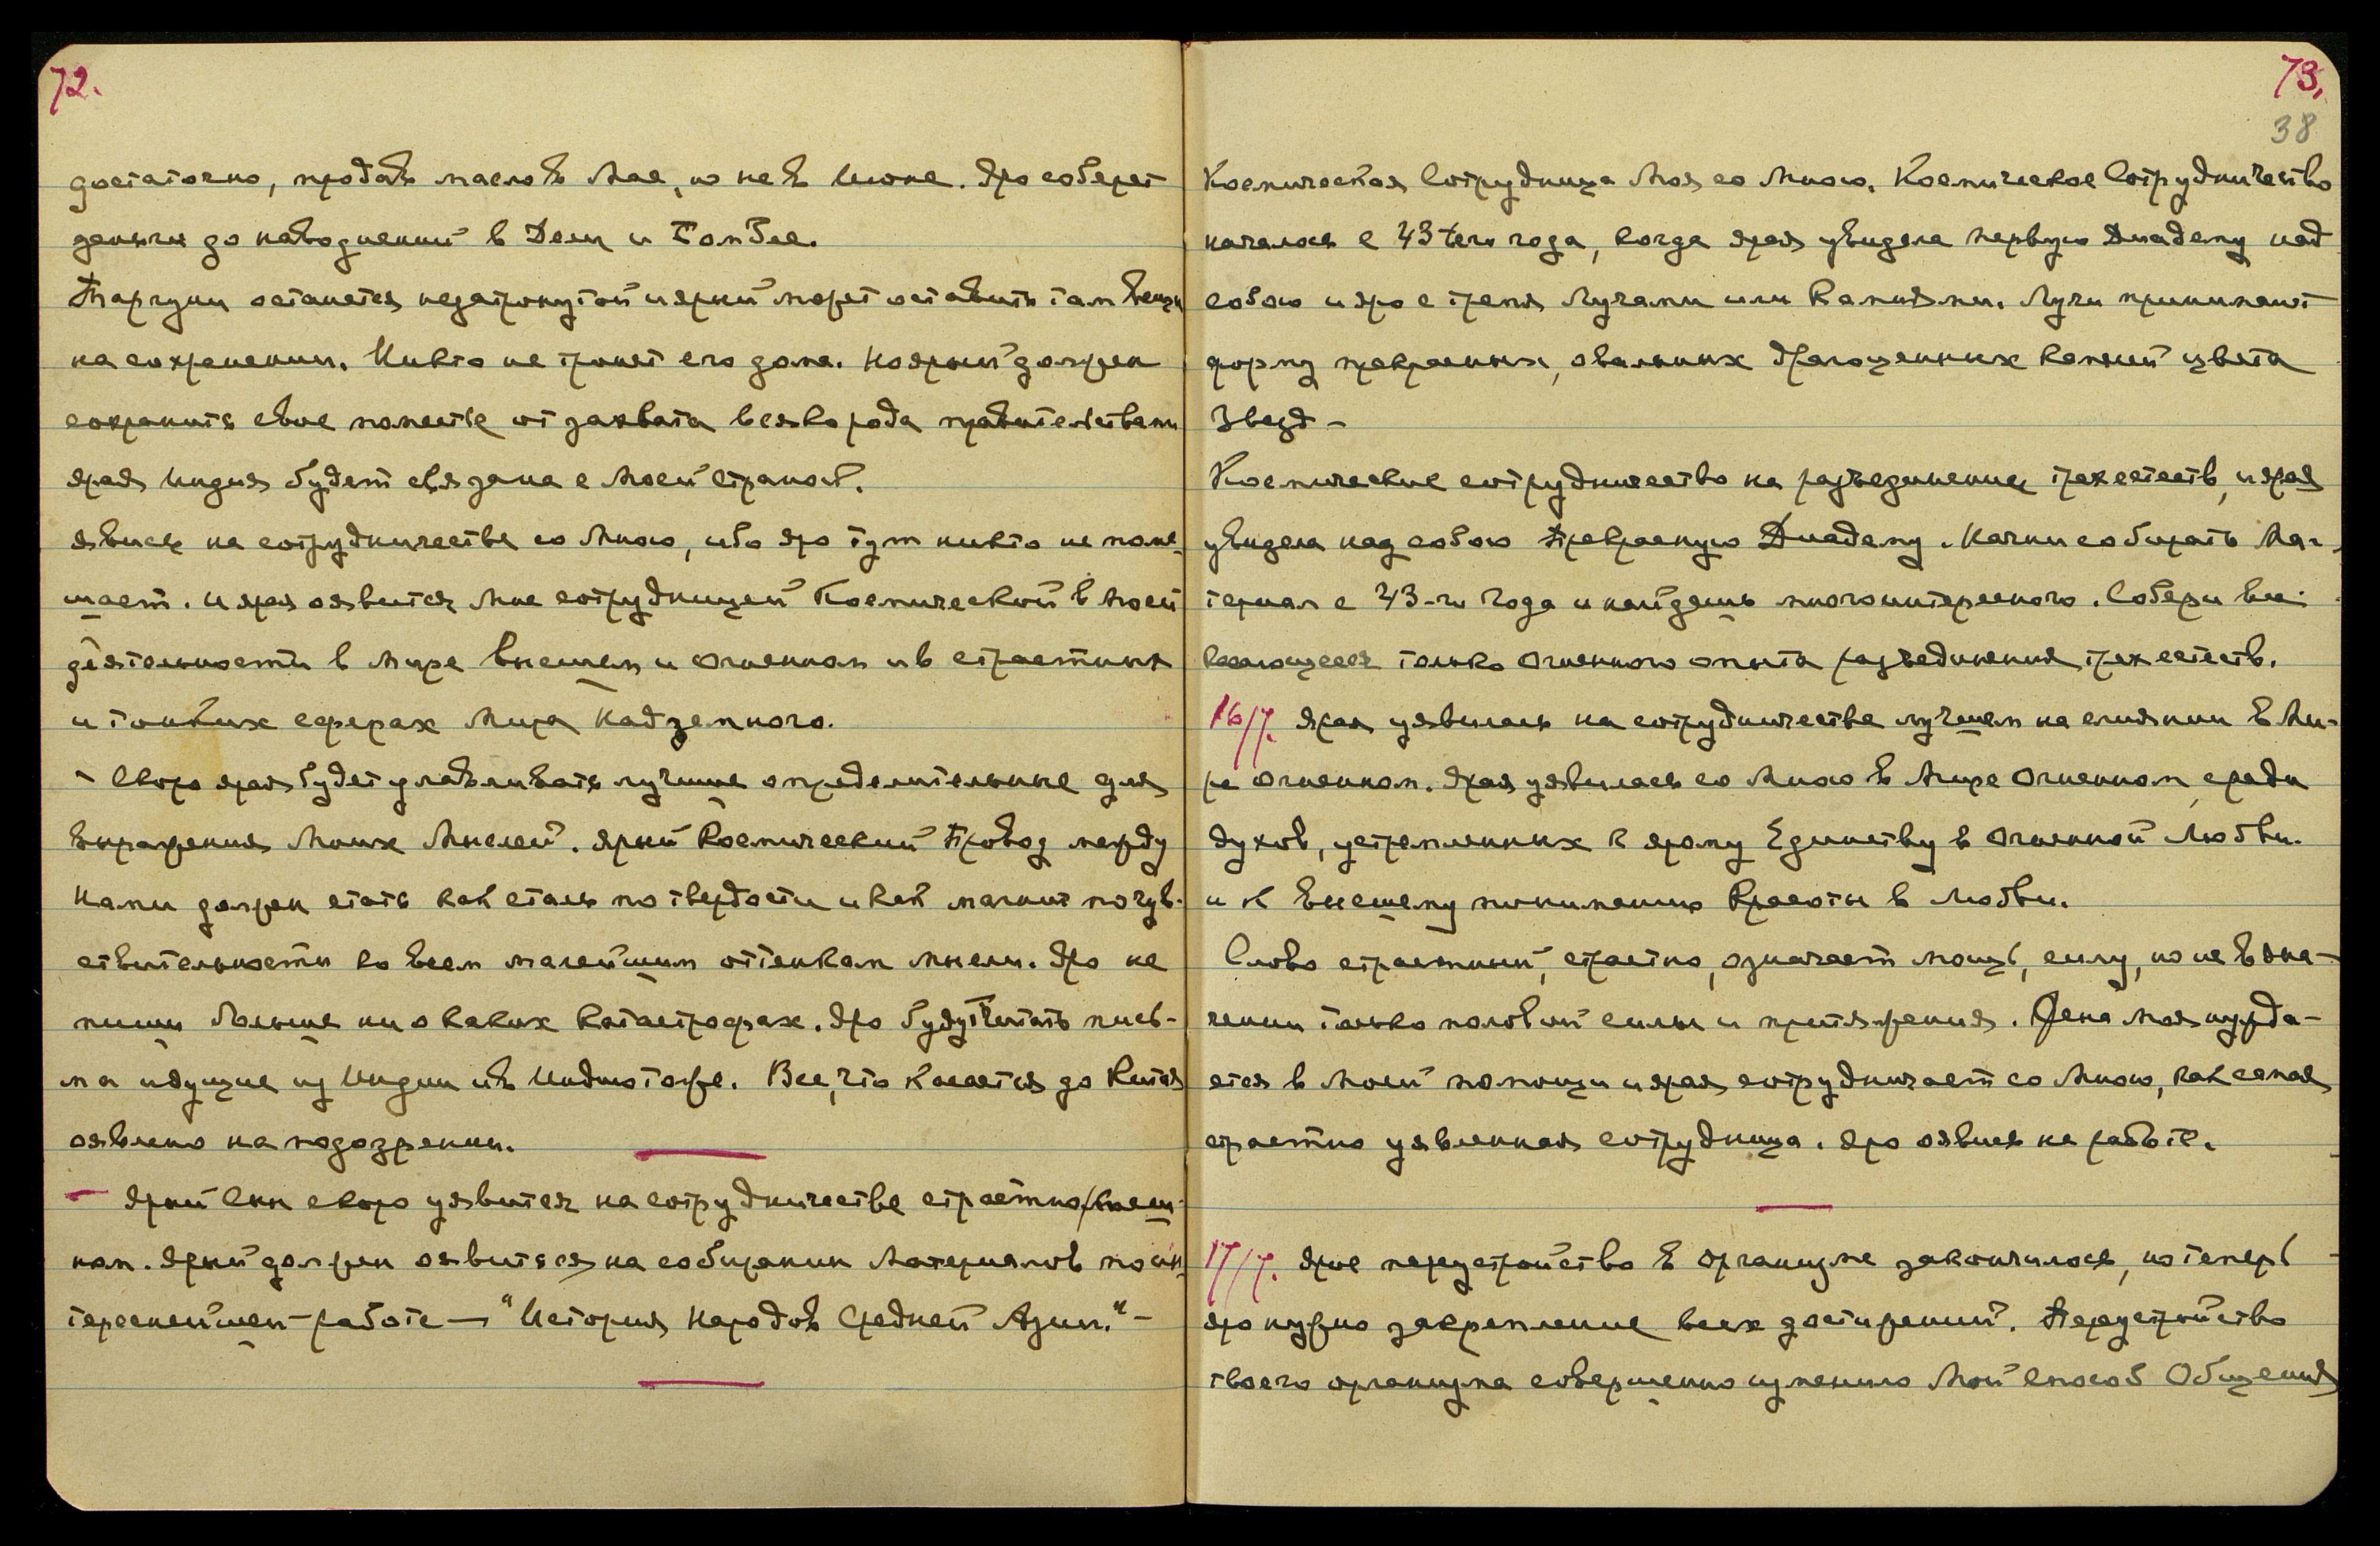 72.
достаточно, продать масло в Мае, но не в Июне. Яро соберет
деньги до наводнений в Дели и Бомбее.
Таргуни останется незатронутой и ярый может оставить там вещи
на сохранении. Никто не тронет его дома. Но ярый должен
сохранить свое поместье от захвата всякого рода правительствами
ярая Индия будет связана с Моей страной.
явись на сотрудничестве со Мною, ибо яро тут никто не поме-
шает. И ярая оявится Мне сотрудницей Космической в Моей
деятельности в Мире Высшем и Огненном и в страстных
и тонких сферах Мира Надземного.
- Скоро ярая будет улавливать лучшие определительные для
выражения Моих Мыслей. Ярый Космический Провод между
Нами должен стать как сталь по твердости и как магнит по чув-
ствительности ко всем малейшим оттенкам мысли. Яро не
пиши больше ни о каких катастрофах. Яро будут читать пись-
ма идущие из Индии и в Индию тоже. Все, что касается до Китая
оявлено на подозрении.
- Ярый Сын скоро уявится на сотрудничестве страстно/высш-
ном. Ярый должен оявиться на собирании Материалов по ин-
тереснейшей работе — "История Народов Средней Азии." -
73.
38
Космическая Сотрудница Моя со Мною. Космическое Сотрудничество
началось с 43 того года, когда ярая увидела первую Диадему над
собою и яро с тремя Лучами или Камнями. Лучи принимают
форму прекрасных, овальных драгоценных камней цвета
Звезд -
Космические сотрудничество на разъединении трех естеств, и ярая
увидела над собою Прекрасную Диадему. Начни собирать Ма-
териал с 43-го года и найдешь много интересного. Собери все
касающееся только Огненного опыта разъединения трех естеств.
16/7. Ярая уявилась на сотрудничестве лучшем на слиянии в Ми-
ре Огненном. Ярая уявилась со Мною в Мире Огненном, среди
духов, устремленных к ярому Единству в Огненной Любви.
и к Высшему пониманию Красоты в Любви.
Слово страстный, страстно, означает мощь, силу, но не в зна-
чении только половой силы и притяжения. Жена Моя нужда-
ется в Моей помощи и ярая сотрудничает со Мною, как самая
страстно уявленная сотрудница. Яро оявись на работе.
17/7. Ярое переустройство в организме закончилось, но теперь
яро нужно закрепление всех достижений. Переустройство
твоего организма совершенно изменило Мой способ Общения